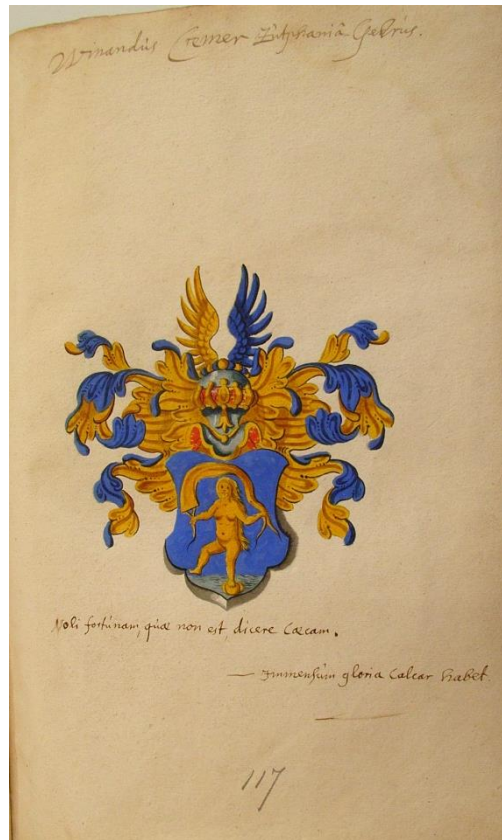 Winandus Cremer Zutphaniâ Gelrus.
Noli fortunam, quæ non est, dicere Cæcam.
— Immensum gloria Calcar habet.
117